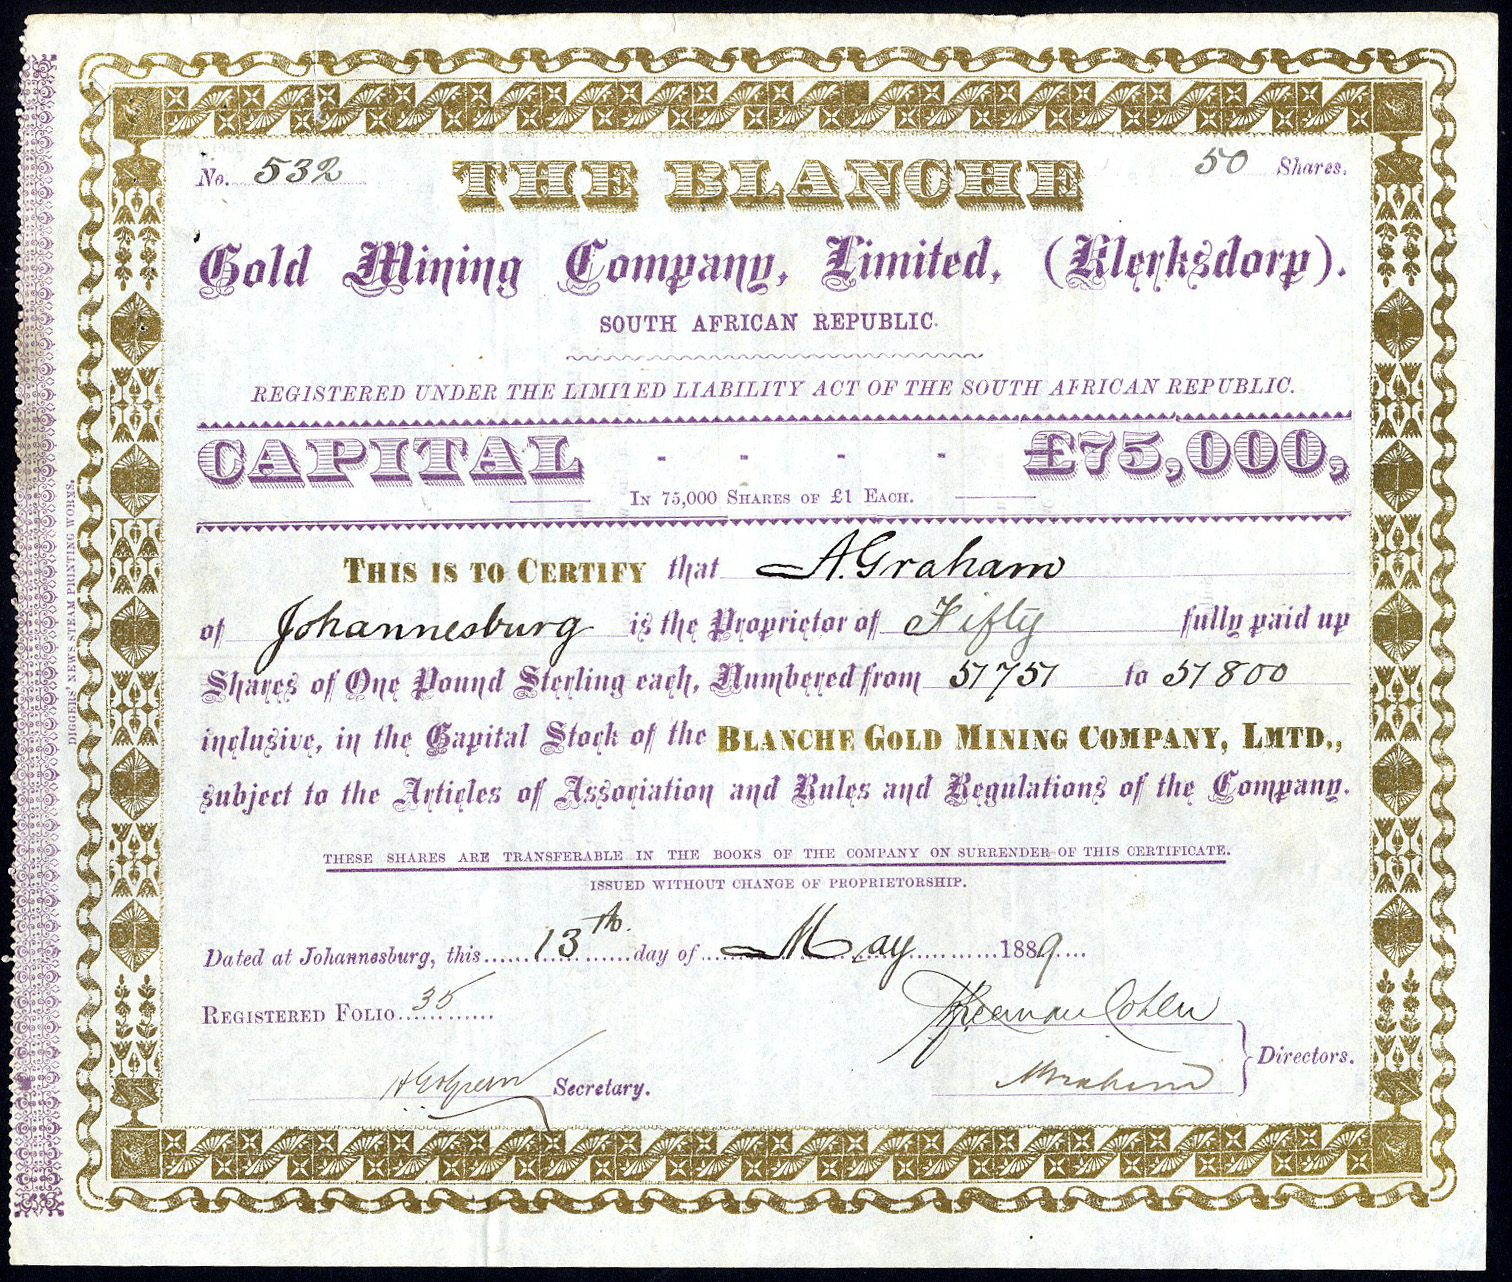 No. 532
50 Shares.
THE BLANCHE
Gold Mining Company, Limited, (Klerksdorp).
SOUTH AFRICAN REPUBLIC.
REGISTERED UNDER THE LIMITED LIABILITY ACT OF THE SOUTH AFRICAN REPUBLIC.
CAPITAL - - - - £75,000,
IN 75,000 SHARES OF £1 EACH.
THIS IS TO CERTIFY that A. Graham
of Johannesburg is the Proprietor of Fifty fully paid up
Shares of One Pound Sterling each, Numbered from 51751 to 51800
inclusive, in the Capital Stock of the BLANCHE GOLD MINING COMPANY, LMTD.,
subject to the Articles of Association and Rules and Regulations of the Company.
THESE SHARES ARE TRANSFERABLE IN THE BOOKS OF THE COMPANY ON SURRENDER OF THIS CERTIFICATE.
ISSUED WITHOUT CHANGE OF PROPRIETORSHIP.
Dated at Johannesburg, this 13th. day of May 1889
REGISTERED FOLIO 35
Freeman Cohen
Directors.
AGraham
Secretary.
DIGGERS' NEWS STEAM PRINTING WORKS.